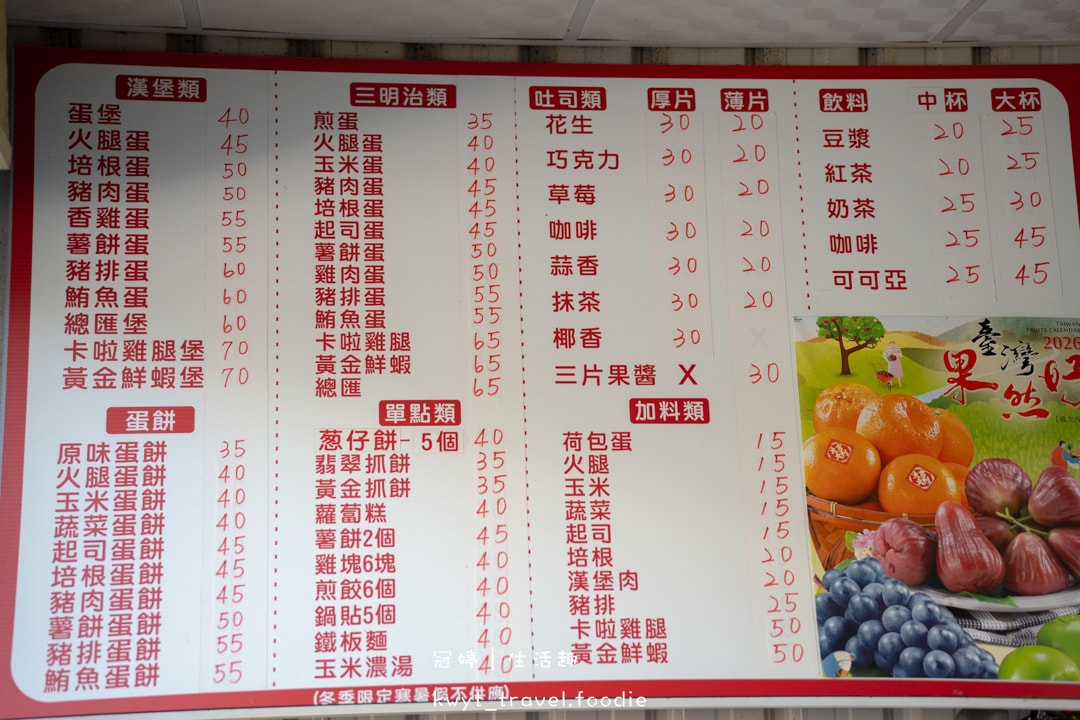 漢堡類
蛋堡 40
火腿蛋 45
培根蛋 50
豬肉蛋 50
香雞蛋 55
薯餅蛋 55
豬排蛋 60
鮪魚蛋 60
總匯堡 60
卡啦雞腿堡 70
黃金鮮蝦堡 70
蛋餅
原味蛋餅 35
火腿蛋餅 40
玉米蛋餅 40
蔬菜蛋餅 40
起司蛋餅 45
培根蛋餅 45
豬肉蛋餅 45
薯餅蛋餅 50
豬排蛋餅 55
鮪魚蛋餅 55
三明治類
煎蛋 35
火腿蛋 40
玉米蛋 40
豬肉蛋 45
培根蛋 45
起司蛋 45
薯餅蛋 50
雞肉蛋 50
豬排蛋 55
鮪魚蛋 55
卡啦雞腿 65
黃金鮮蝦 65
總匯 65
單點類
葱仔餅- 5個 40
翡翠抓餅 35
黃金抓餅 35
蘿蔔糕 40
薯餅2個 45
雞塊6塊 40
煎餃6個 40
鍋貼5個 40
鐵板麵 40
玉米濃湯 40
(冬季限定寒暑假不供應)
吐司類 厚片 薄片
花生 30 20
巧克力 30 20
草莓 30 20
咖啡 30 20
蒜香 30 20
抹茶 30 20
椰香 30 X
三片果醬 X 30
加料類
荷包蛋 15
火腿 15
玉米 15
蔬菜 15
起司 15
培根 20
漢堡肉 20
豬排 25
卡啦雞腿 50
黃金鮮蝦 50
飲料 中杯 大杯
豆漿 20 25
紅茶 20 25
奶茶 25 30
咖啡 25 45
可可亞 25 45
TAIWAN
FRUITS CALENDAR
2026
臺灣
果然旺
冠婷 | 生活趣
kwyt_travel.foodie